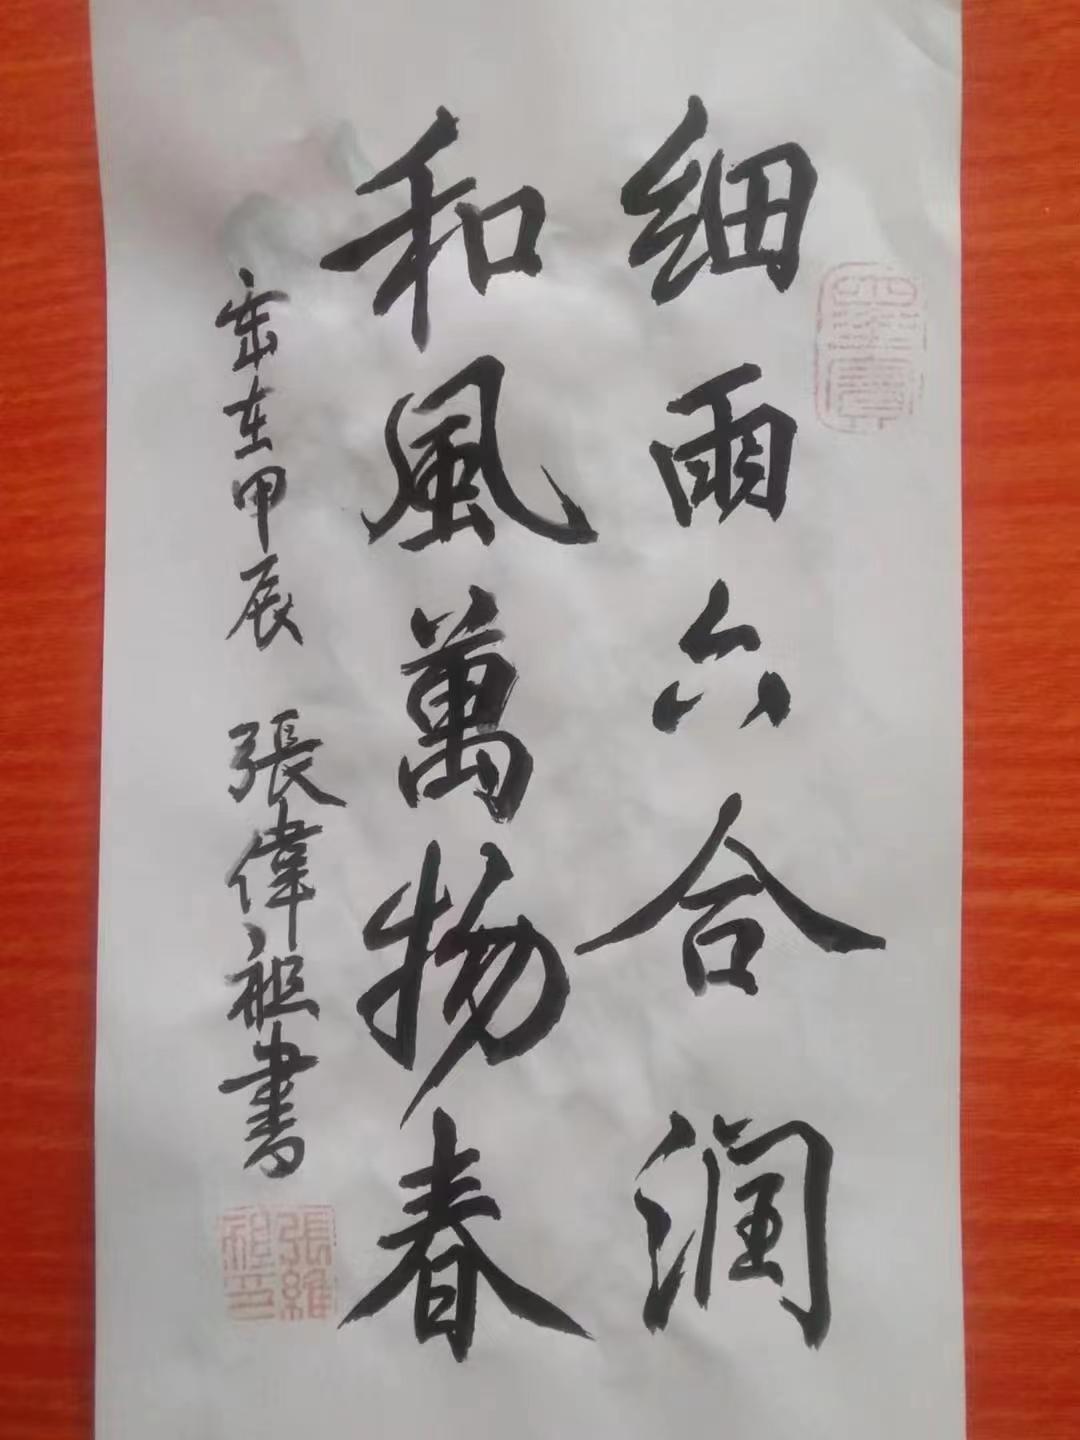 細雨六合润
和風萬物春
歲在甲辰 張偉祖書
張維祖印